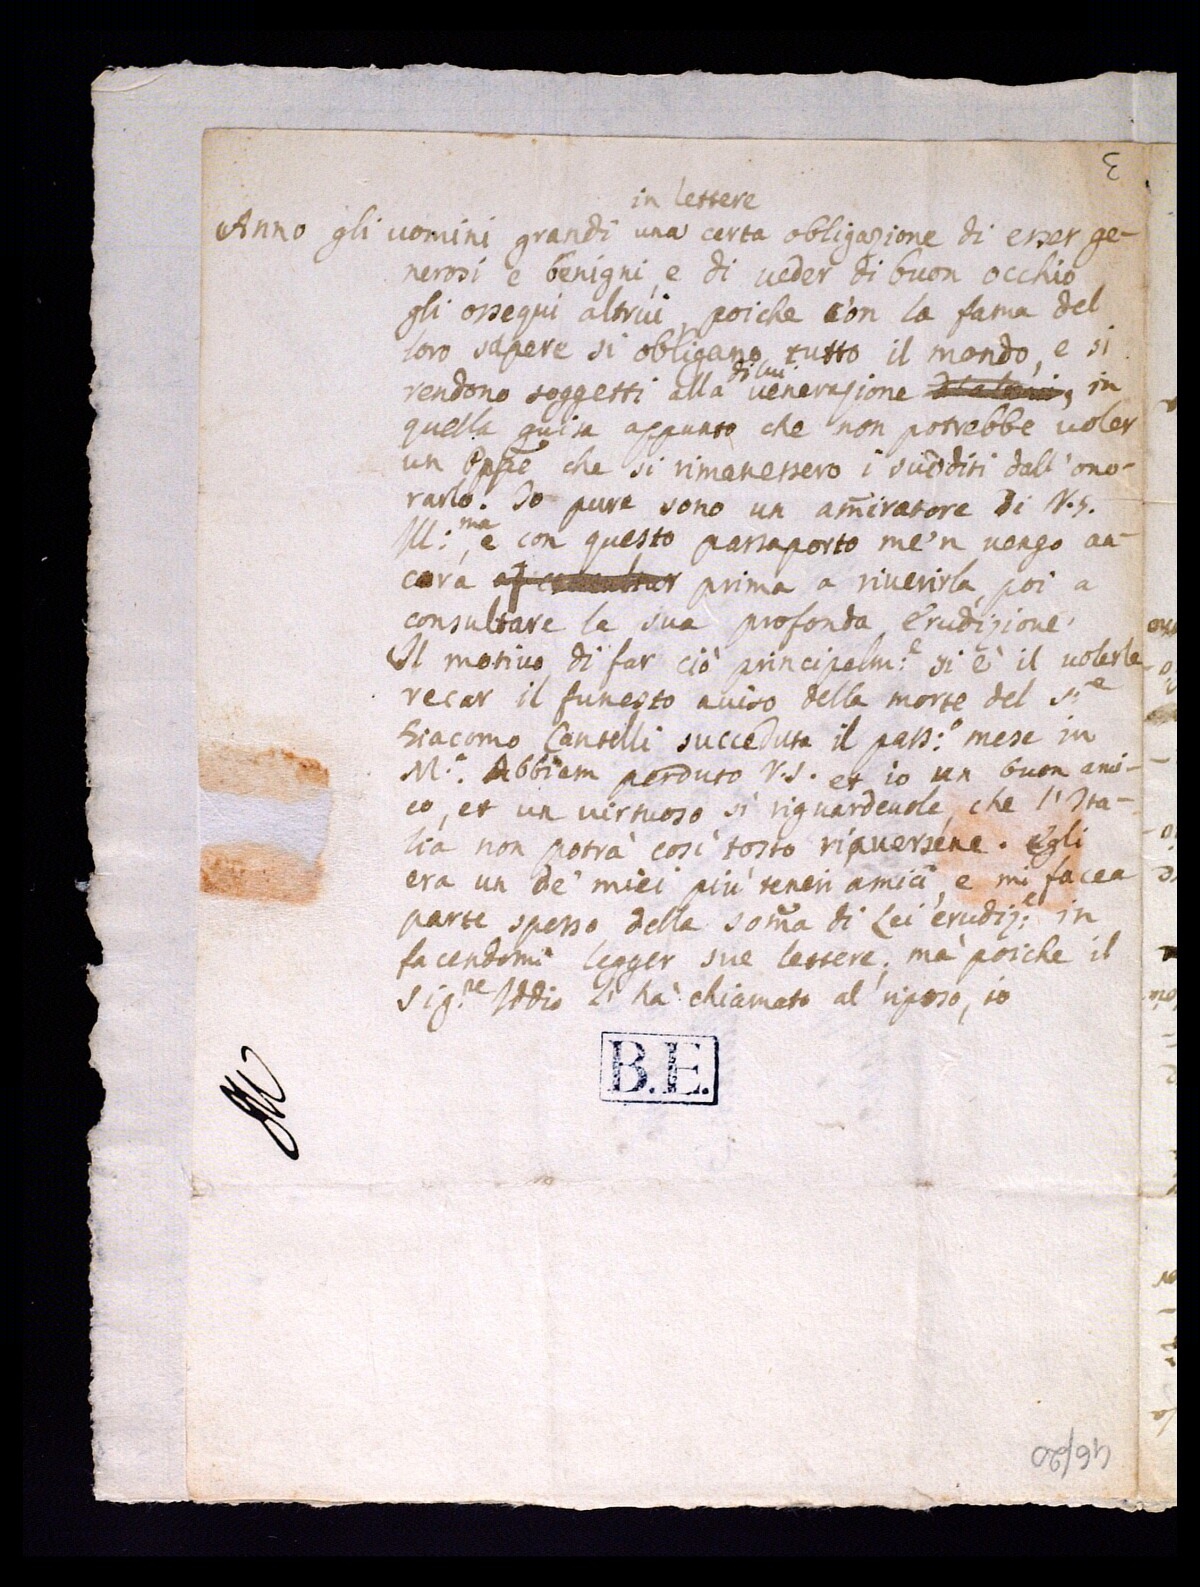 3
in lettere
Anno gli uomini grandi una certa obligazione di esser ge-
nerosi e benigni, e di veder di buon occhio
gli ossequi altrui, poiche con la fama del
loro sapere si obligano tutto il mondo, e si
di lui
rendono soggetti alla venerazione, in
quella guisa appunto che non potrebbe voler
un che si rimanessero i sudditi dall'ono-
rarlo. Io pure sono un amiratore di V.S.
Ill:ma, e con questo passaporto me'n vengo an-
cora prima a riverirla, poi a
consultare la sua profonda erudizione.
Il motivo di far ciò principalm:e si è il volerle
recar il funesto aviso della morte del S:re
Giacomo Cantelli succeduta il pass:o mese in
M:a. Abbiam perduto V.S. et io un buon ami-
co, et un virtuoso sì riguardevole, che l'Ita-
lia non potrà così tosto Egli
era un de' miei più teneri amici, e mi facea
parte spesso della soma di Lei erudiz:e in
facendomi legger sue lettere; ma poiche il
Sig:re Iddio l'ha chiamato al riposo, io
B.E.
46/20